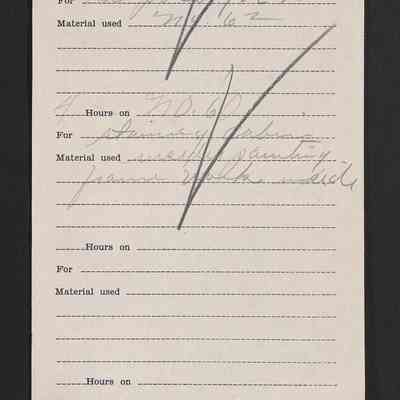 For
Material used No 62
4 Hours on No. 60
For staining cabin
Material used painting
frame work inside
Hours on
For
Material used
Hours on